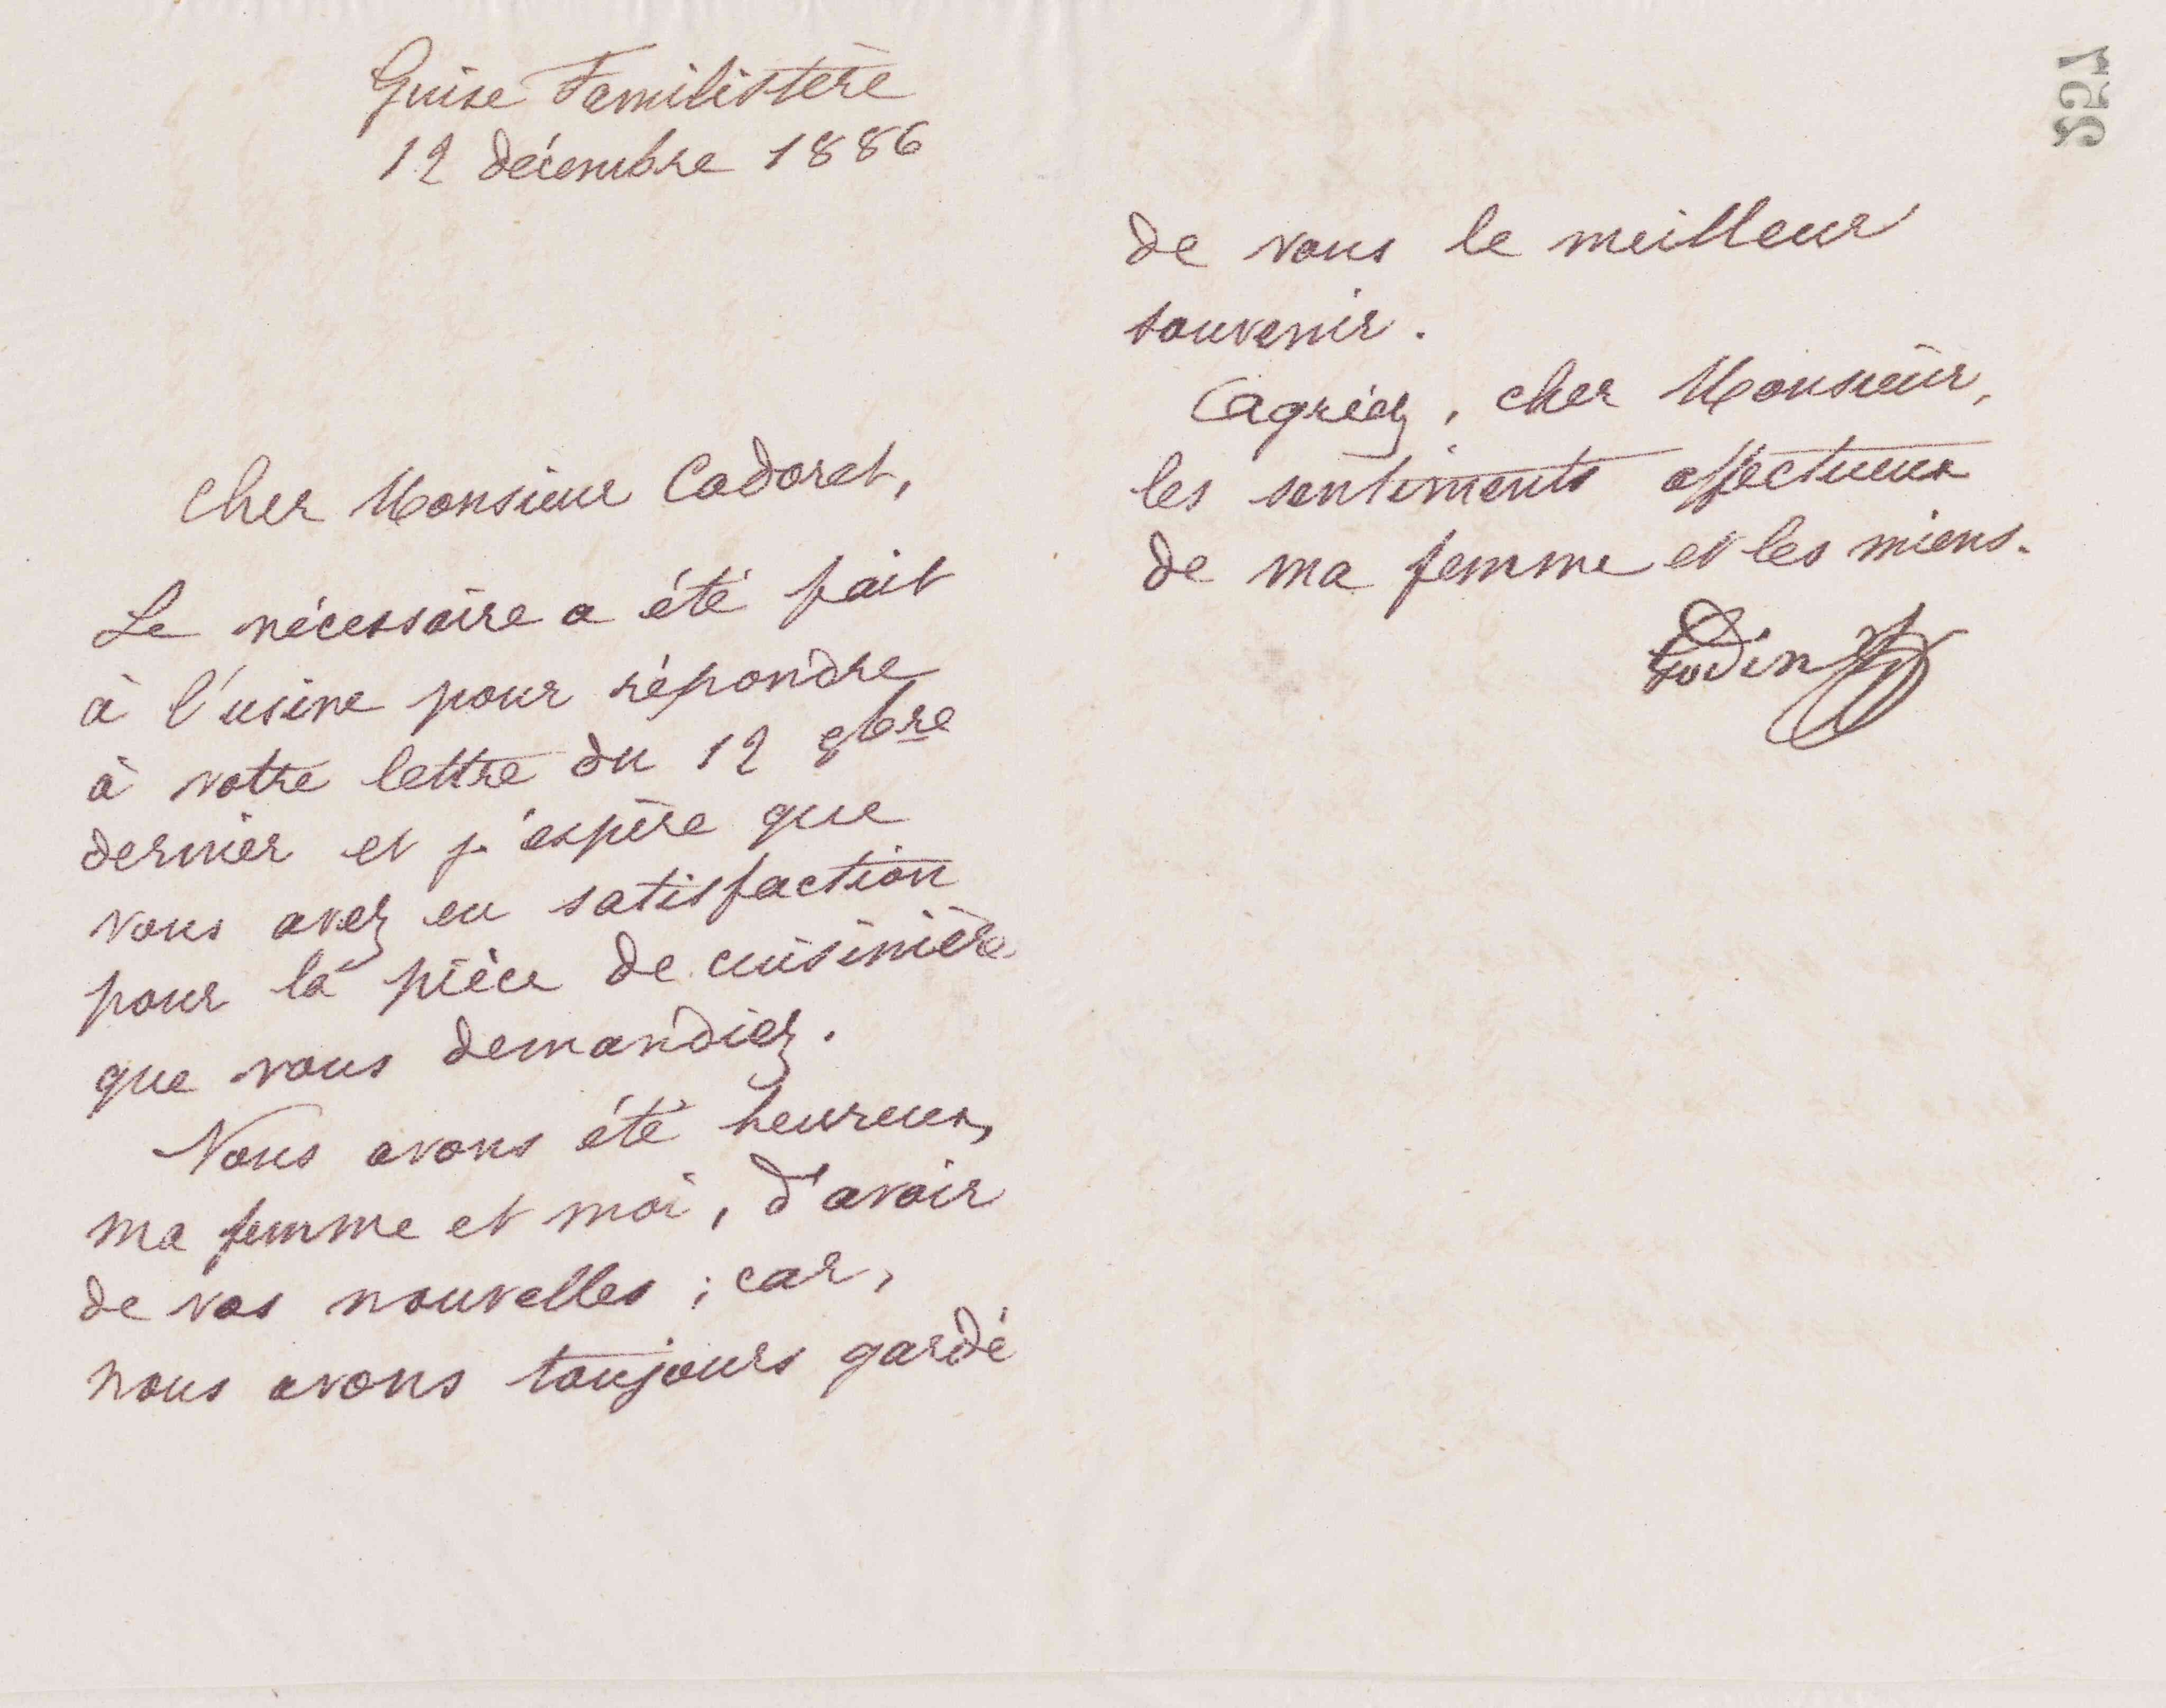 Guise Familistère
12 décembre 1886
Cher Monsieur Cadoret,
Le nécessaire a été fait
à l'usine pour répondre
à votre lettre du 12 9bre
dernier et j'espère que
vous avez eu satisfaction
pour la pièce de cuisinière
que vous demandiez.
Nous avons été heureux,
ma femme et moi, d'avoir
de vos nouvelles ; car,
nous avons toujours gardé
551
de vous le meilleur
souvenir.
Agréez, cher Monsieur,
les sentiments affectueux
de ma femme et les miens.
Godin